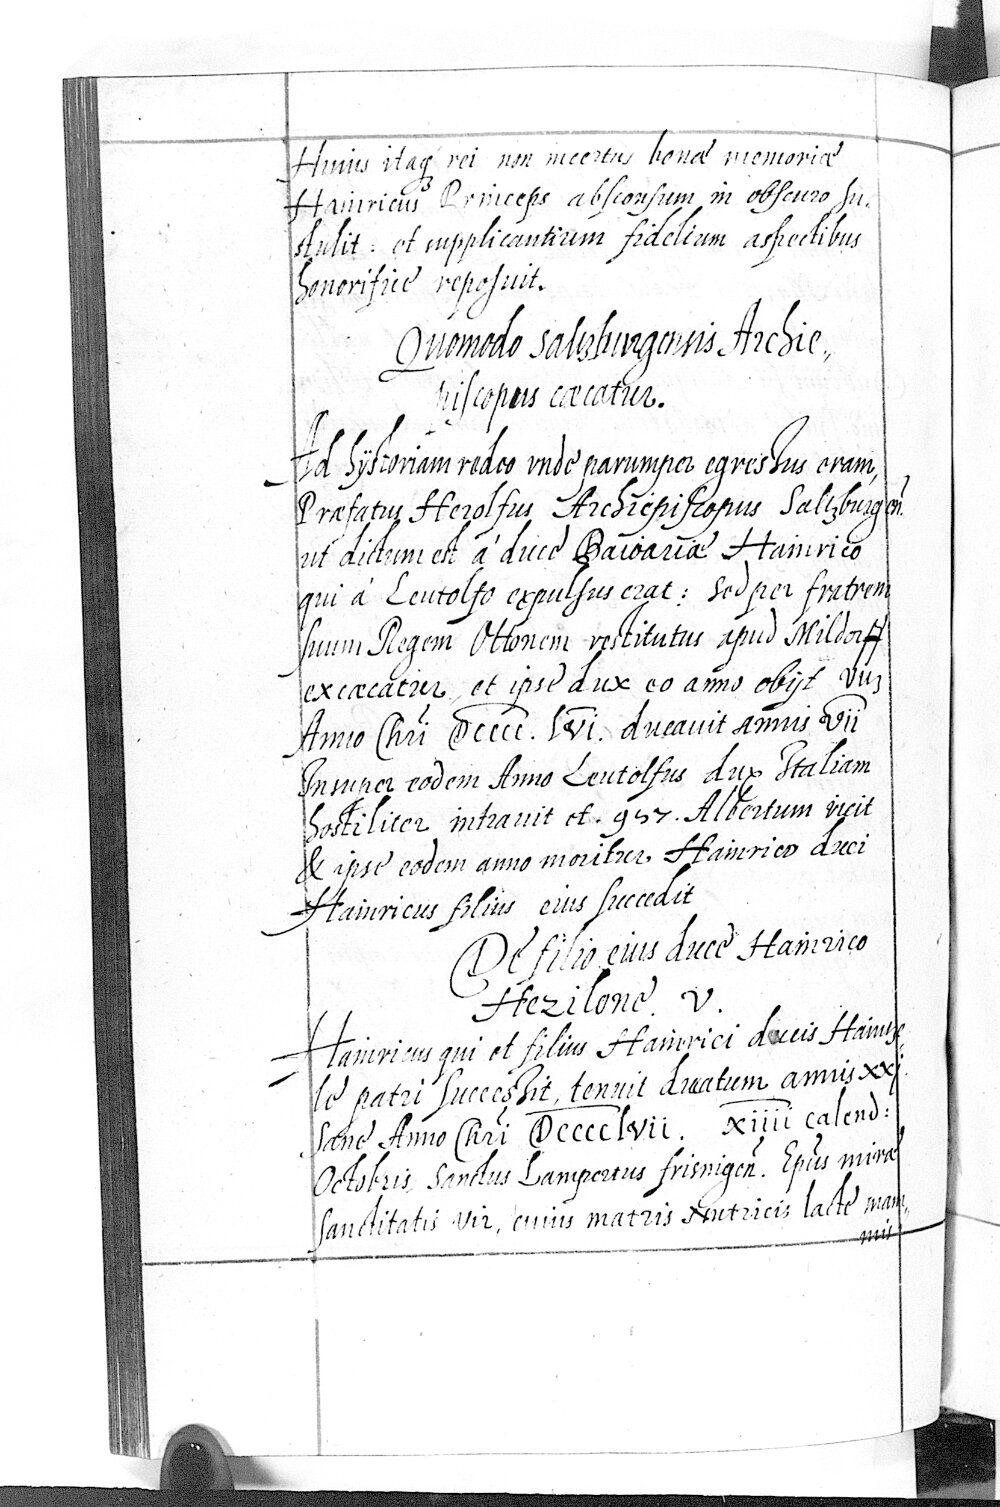 Huius itaq₃ rei non incertus bonæ memoriæ
Hainricus Princeps absconsum in obscuro su,
stulit: et supplicantium fidelium aspectibus
honorificè reposuit.
Quomodo Saltzburgensis Archie,,
piscopus cæcatur.
Ad hÿstoriam redeo vnde parumper egressus eram,
Præfatus Herolfus Archiepiscopus Saltzburgen̄.
ut dictum est á duce Baioariæ Hainrico
qui á Leutolfo expulsus erat: sed per fratrem
suum Regem Ottonem restitutus apud Mildorff
excæcatur, et ipse dux eo anno obijt
Anno Chr̄i DCCCC. lVI. ducauit annis VII
Insuper eodem Anno Leutolfus dux Italiam
hostiliter intrauit et. 957. Albertum vicit
& ipse eodem anno moritur, Hainrico duci
Hainricus filius eius succedit
De filio eius duce Hainrico
Hezilone. V.
Hainricus qui et filius Hainrici ducis Hainse,
le patri successit, tenuit ducatum annis XXj.
Sane Anno Chr̄i DCCCClVII. XIIII calend:
Octobris, Sanctus Lampertus frisingen̄. Ep̄us miræ
sanctitatis vir, cuius matris nutricis lacte mam,,
mis